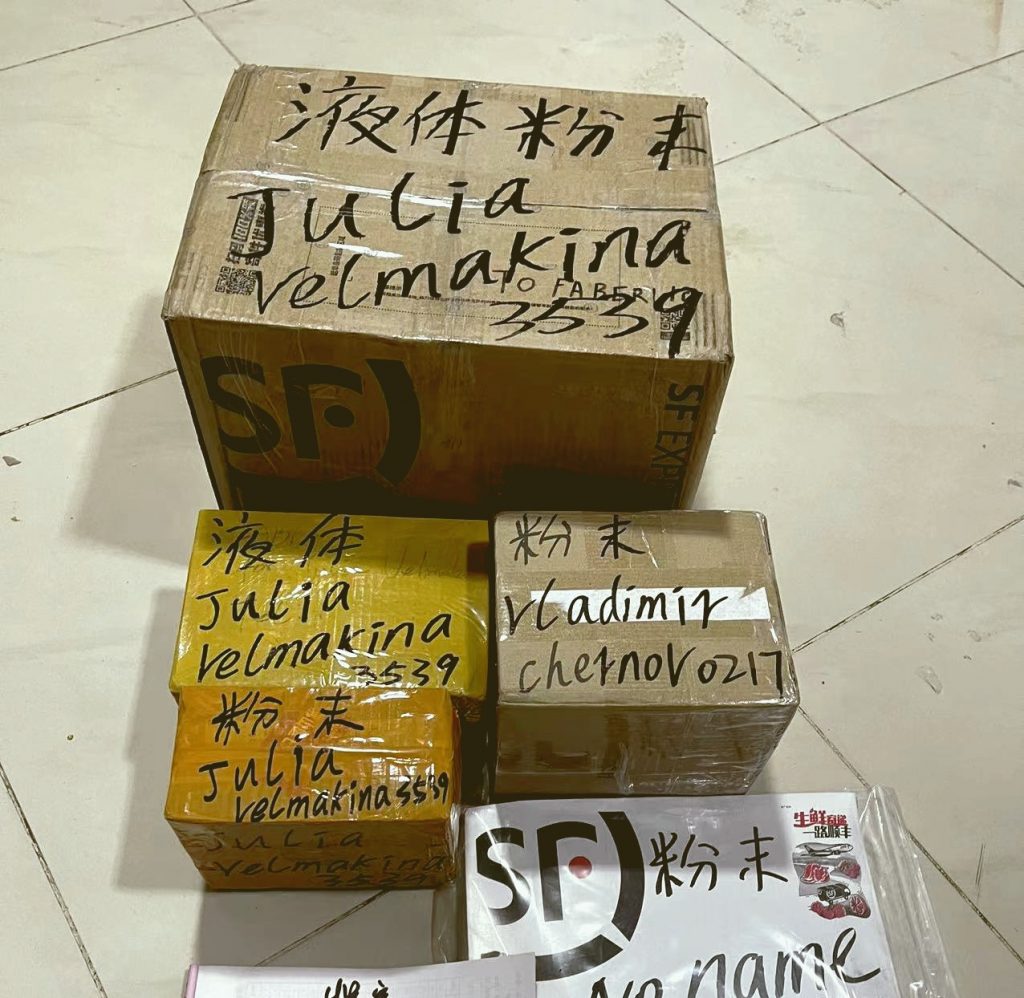 液体粉末
Julia
velmakina
TO FABERLIC
3539
SF
SF EXP
液体
Julia
velmakina
3539
粉末
vladimir
chernov0217
粉末
Julia
velmakina3539
Julia
velmakina
3539
SF
粉末
生鲜
一路顺丰
no name